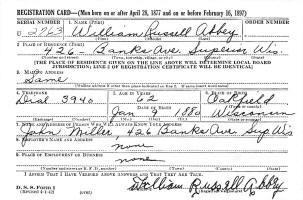 REGISTRATION CARD—(Men born on or after April 28, 1877 and on or before February 16, 1897)
SERIAL NUMBER 1. NAME (Print) ORDER NUMBER
U 2963 William Russell Abbey
(First) (Middle) (Last)
2. PLACE OF RESIDENCE (Print)
426 Banks Ave Superior Wis.
(Number and street) (Town, township, village, or city) (County) (State)
[THE PLACE OF RESIDENCE GIVEN ON THE LINE ABOVE WILL DETERMINE LOCAL BOARD
JURISDICTION; LINE 2 OF REGISTRATION CERTIFICATE WILL BE IDENTICAL]
3. MAILING ADDRESS
Same
4. TELEPHONE 5. AGE IN YEARS 6. PLACE OF BIRTH
Dial 3940 62 Oakfield
DATE OF BIRTH
Jan 1880 Wisconsin
7. NAME AND ADDRESS OF PERSON WHO WILL ALWAYS KNOW YOUR ADDRESS
John Miller, 426 Banks Ave Sup Wis
8. EMPLOYER'S NAME AND ADDRESS
none
9. PLACE OF EMPLOYMENT OR BUSINESS
none
I AFFIRM THAT I HAVE VERIFIED ABOVE ANSWERS AND THAT THEY ARE TRUE.
D. S. S. Form 1
(Revised 4-1-42)
William Russell Abbey